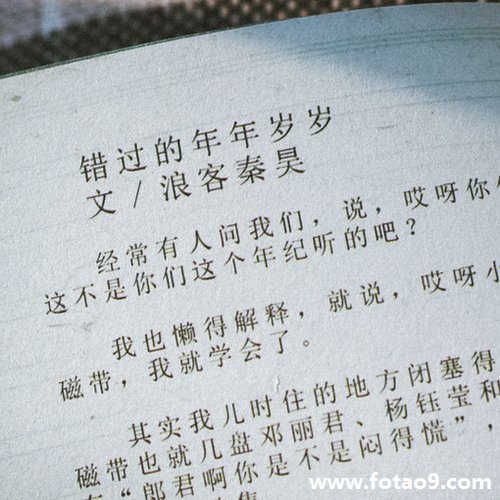 错过的年年岁岁
文/浪客秦昊
经常有人问我们，说，哎呀你
这不是你们这个年纪听的吧？
我也懒得解释，就说，哎呀小
磁带，我就学会了。
其实我儿时住的地方闭塞得
磁带也就几盘邓丽君、杨钰莹和
“郎君啊你是不是闷得慌”，
www.fotao9.com